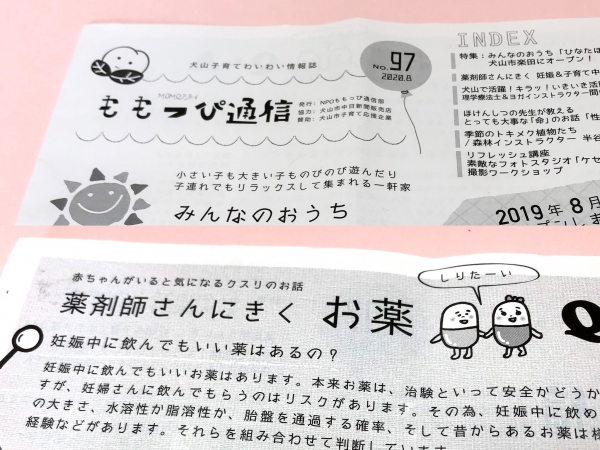 犬山子育てわいわい情報誌
MOMOっぴ
ももっぴ通信
発行：NPOももっぴ通信部
協力：犬山市中日新聞販売店
賛同：犬山市子育て応援企業
NO. 97
2020.8
INDEX
特集：みんなのおうち「ひなたぼ
犬山市楽田にオープン！
薬剤師さんにきく 妊娠＆子育て中
犬山で活躍！キラッ！いきいき活
理学療法士＆ヨガインストラクター間
ほけんしつの先生が教える
とっても大事な「命」のお話「性
季節のトキメク植物たち
/ 森林インストラクター 半谷
リフレッシュ講座
素敵なフォトスタジオ「ケセ
撮影ワークショップ
小さい子も大きい子ものびのび遊んだり
子連れでもリラックスして集まれる一軒家
みんなのおうち
2019年8月
赤ちゃんがいると気になるクスリのお話
薬剤師さんにきく お薬 Q
しりたーい
妊娠中に飲んでもいい薬はあるの？
妊娠中に飲んでもいいお薬はあります。本来お薬は、治験といって安全かどうか
すが、妊婦さんに飲んでもらうのはリスクがあります。その為、妊娠中に飲め
の大きさ、水溶性か脂溶性か、胎盤を通過する確率、そして昔からあるお薬は
経験などがあります。それらを組み合わせて判断しています